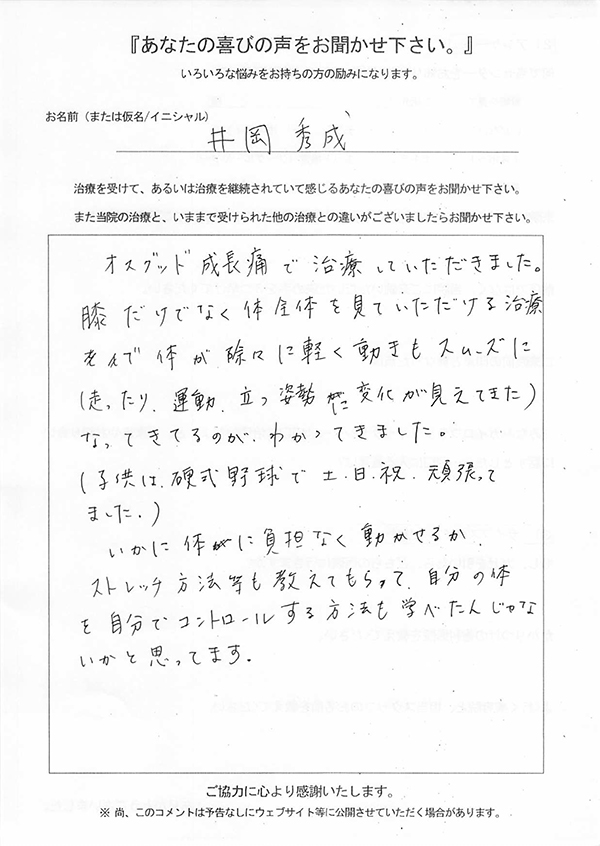 『あなたの喜びの声をお聞かせ下さい。』
いろいろな悩みをお持ちの方の励みになります。
お名前（または仮名/イニシャル）
井岡 秀成
治療を受けて、あるいは治療を継続されていて感じるあなたの喜びの声をお聞かせ下さい。
また当院の治療と、いままで受けられた他の治療との違いがございましたらお聞かせ下さい。
オスグッド成長痛で治療していただきました。
膝だけでなく体全体を見ていただける治療
体が除々に軽く動きもスムーズに
(走ったり、運動、立つ姿勢に変化が見えてきた)
なってきてるのが、わかってきました。
(子供は、硬式野球で土、日、祝、頑張って
ました。)
いかに体に負担なく動かせるか、
ストレッチ方法等も教えてもらって、自分の体
を自分でコントロールする方法も学べたんじゃな
いかと思ってます。
ご協力に心より感謝いたします。
※ 尚、このコメントは予告なしにウェブサイト等に公開させていただく場合があります。